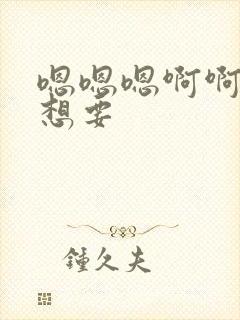 嗯嗯嗯啊啊
想要
鍾久夫